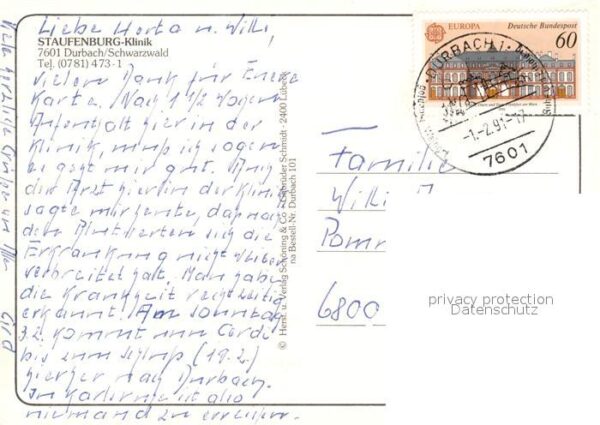 Liebe Horta u. Willi,
STAUFENBURG-Klinik
7601 Durbach/Schwarzwald
Tel. (0781) 473-1
vielen Dank für Eure
Karte. Nach 1 1/2 Wochen
Aufenthalt hier in der
Klinik, muß ich sagen
es geht mir gut. Auch
der Arzt hier in der Klinik
sagte mir heute, daß nach
den Blutwerten sich die
Erkrankung nicht weiter
verbreitet hat. Man habe
die Krankheit rechtzeitig
erkannt. Am Sonntag
3.2. kommt nun Gerdi
bis zum Schluß (19.2.)
hierher nach Durbach.
In Karlsruhe ist also
niemand zu erreichen.
Viele herzliche Grüße von
© Herst. u. Verlag Schöning & Co · Gebrüder Schmidt · 2400 Lübeck
na Bestell-Nr. Durbach 101
EUROPA Deutsche Bundespost
60
DURBACH 1
-1.-2.91-17
7601
Familie
Willi
Pomm
6800
privacy protection
Datenschutz